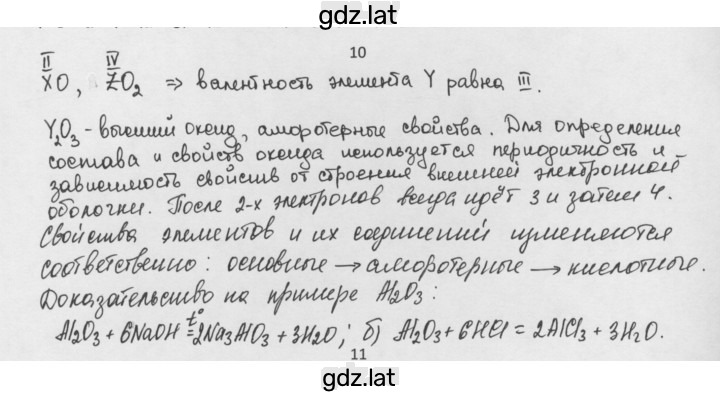 gdz.lat
10
II IV
XO, ZO₂ ⇒ валентность элемента Y равна III.
Y₂O₃ - высший оксид, амфотерные свойства. Для определения
состава и свойств оксида используется периодичность и
зависимость свойств от строения внешней электронной
оболочки. После 2-х электронов всегда идёт 3 и затем 4.
Свойства элементов и их соединений изменяются
соответственно: основные → амфотерные → кислотные.
Доказательство на примере Al₂O₃:
Al₂O₃ + 6NaOH t°= 2Na₃AlO₃ + 3H₂O; б) Al₂O₃ + 6HCl = 2AlCl₃ + 3H₂O.
11
gdz.lat